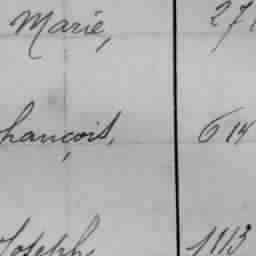 Marie, 271
François, 614
Joseph, 1113